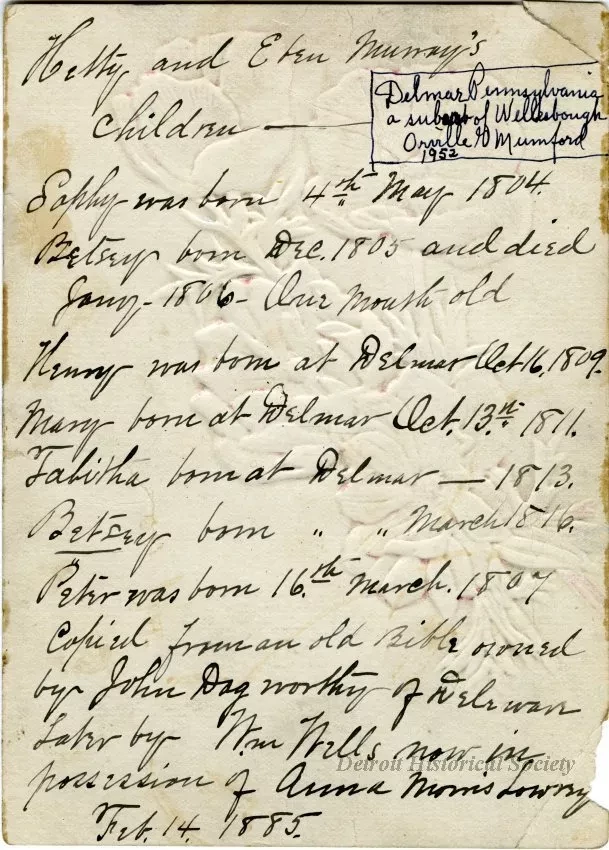 Hetty and Eben Murray's
Children —
Delmar Pennsylvania
a suburb of Wellesbough
Orville D Mumford
1952
Sophy was born 4th May 1804.
Betsey born Dec. 1805 and died
Jany - 1806 - One Month old
Henry was born at Delmar Oct 16, 1809.
Mary born at Delmar Oct. 13.th 1811.
Tabitha born at Delmar — 1813.
Betsey born " " March 1816.
Peter was born 16.th March. 1807
Copied from an old Bible owned
by John Dagworthy of Deleware
Later by Wm Wells now in
possession of Anna Morris Lowrey
Feb. 14. 1885.
Detroit Historical Society